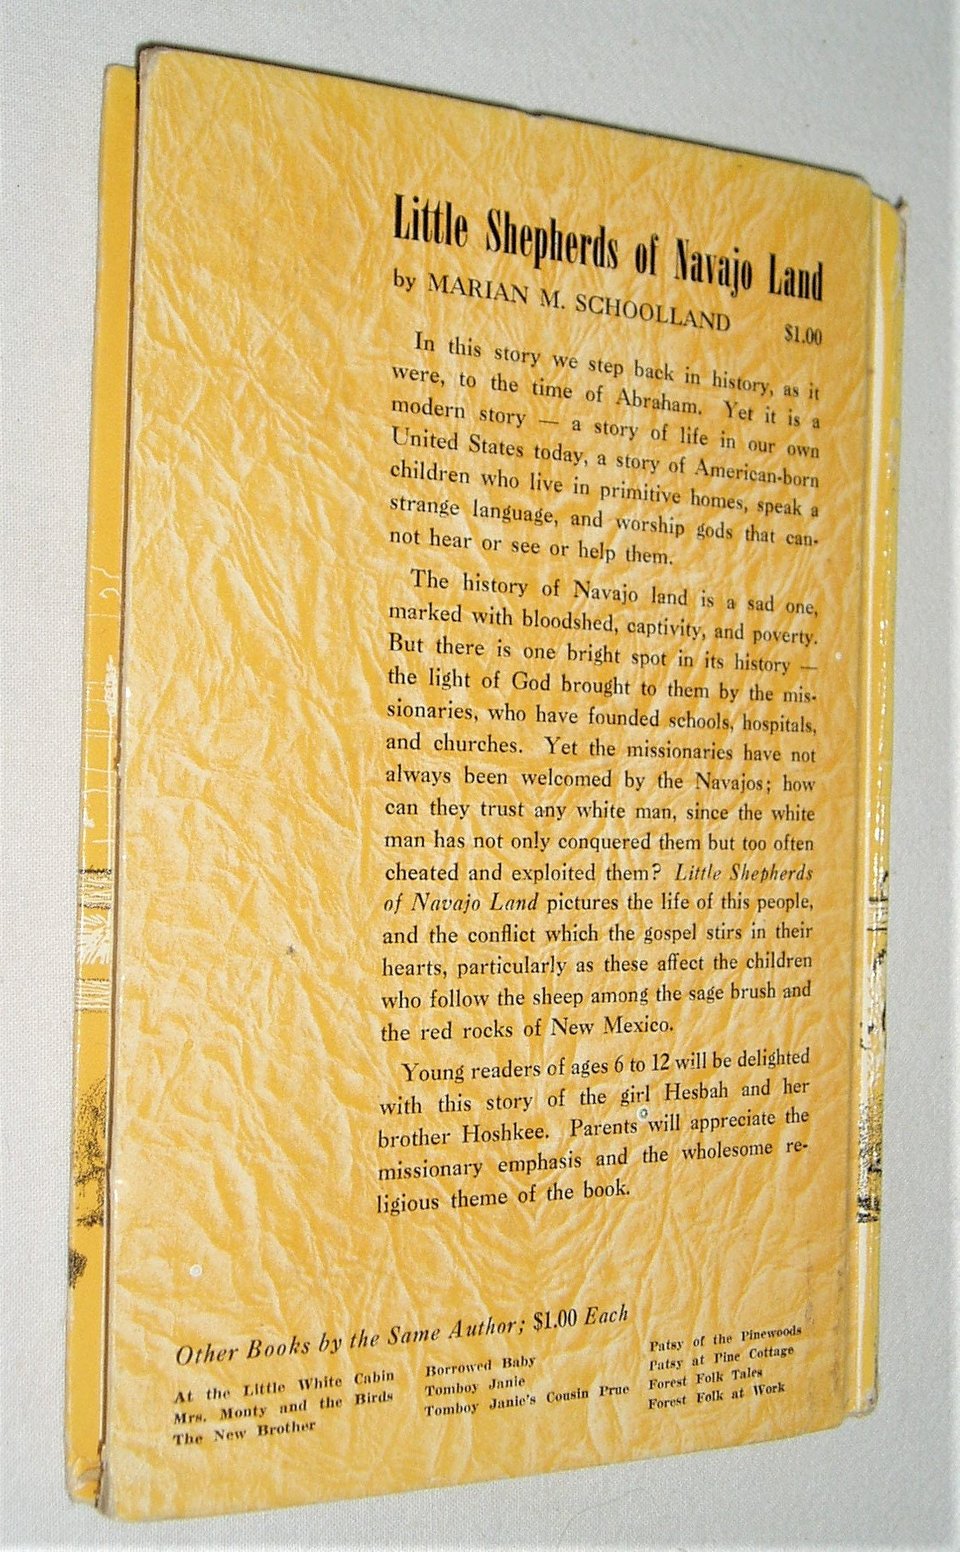 Little Shepherds of Navajo Land
by MARIAN M. SCHOOLLAND $1.00
In this story we step back in history, as it
were, to the time of Abraham. Yet it is a
modern story — a story of life in our own
United States today, a story of American-born
children who live in primitive homes, speak a
strange language, and worship gods that can-
not hear or see or help them.
The history of Navajo land is a sad one,
marked with bloodshed, captivity, and poverty.
But there is one bright spot in its history —
the light of God brought to them by the mis-
sionaries, who have founded schools, hospitals,
and churches. Yet the missionaries have not
always been welcomed by the Navajos; how
can they trust any white man, since the white
man has not only conquered them but too often
cheated and exploited them? Little Shepherds
of Navajo Land pictures the life of this people,
and the conflict which the gospel stirs in their
hearts, particularly as these affect the children
who follow the sheep among the sage brush and
the red rocks of New Mexico.
Young readers of ages 6 to 12 will be delighted
with this story of the girl Hesbah and her
brother Hoshkee. Parents will appreciate the
missionary emphasis and the wholesome re-
ligious theme of the book.
Other Books by the Same Author; $1.00 Each
At the Little White Cabin
Mrs. Monty and the Birds
The New Brother
Borrowed Baby
Tomboy Janie
Tomboy Janie's Cousin Prue
Patsy of the Pinewoods
Patsy at Pine Cottage
Forest Folk Tales
Forest Folk at Work